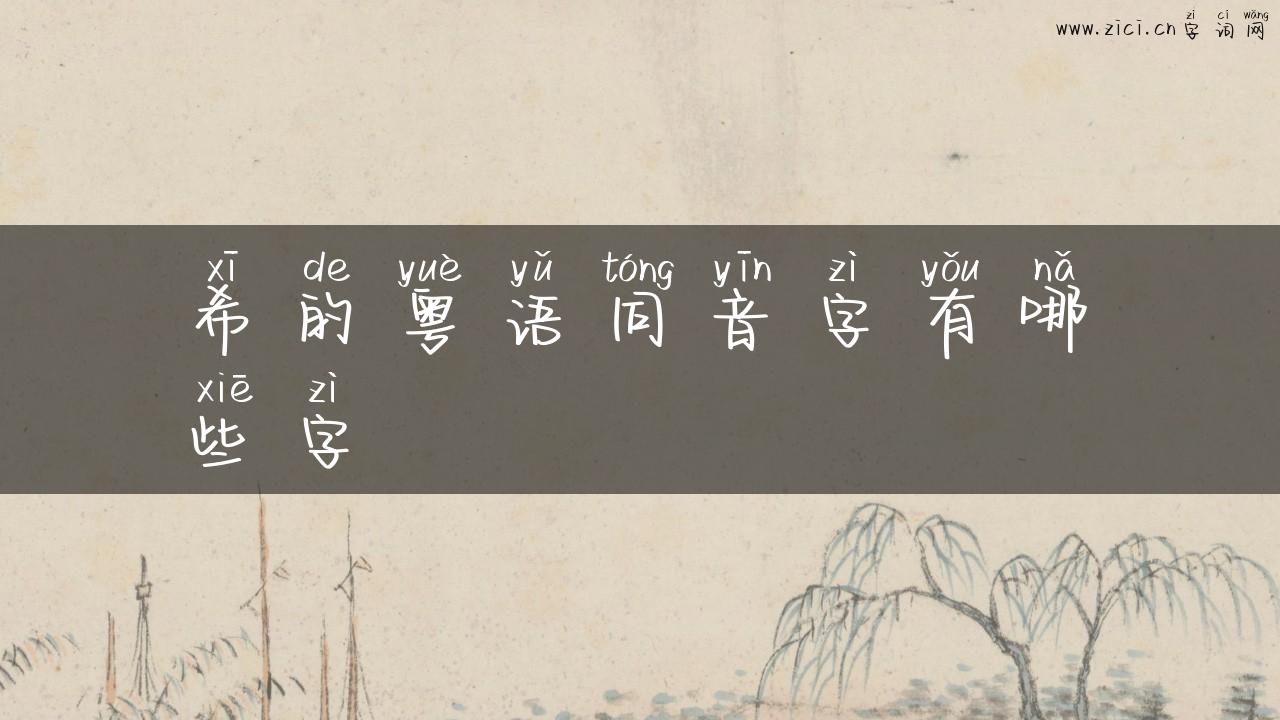 zì cí wǎng
www.zici.cn 字词网
xī de yuè yǔ tóng yīn zì yǒu nǎ
希的粤语同音字有哪
xiē zì
些字